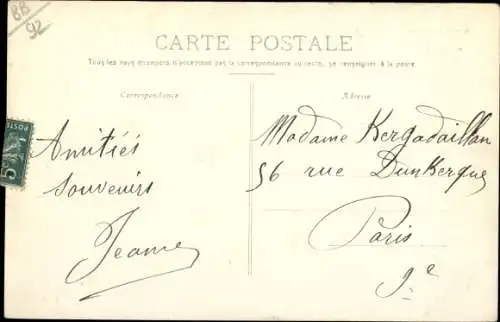 88
92
CARTE POSTALE
Tous les pays étrangers n'acceptent pas la correspondance au recto, se renseigner à la poste
Correspondance
Adresse
Amitiés
souvenirs
Jeanne
Madame Kergadaillan
56 rue Dunkerque
Paris
9e
POSTES
5